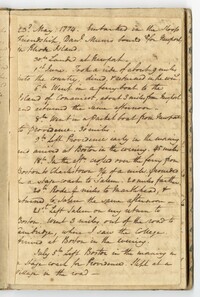 23d. May 1774. Embarked in the Sloop
Friendship Davl. Munro bound for Newport
in Rhode Island.
30th Landed at Newport.
1st June Took a ride of about 9 miles
into the country, dined, & returned in the eveng.
6th Went in a ferry boat to the
Island of Conanicut about 3 miles from Newport
and returned the same afternoon.
8th Went in a Packet boat from Newport
to Providence 30 miles
9th Left Providence early in the morning
and arrived at Boston in the evening. 45 miles
18th In the aftn. crossed over the ferry from
Boston to Charlestown
in a stage coach to Salem. 20 miles farther.
20th Rode 4 miles to Marblehead, &
returned to Salem the same afternoon —
21st Left Salem on my return to
Boston. Went 3 miles out of the road to
Cambridge, where I saw the College
Arrived at Boston in the evening.
July 5th Left Boston in the morning in
a Stage Coach for Providence
on the road —